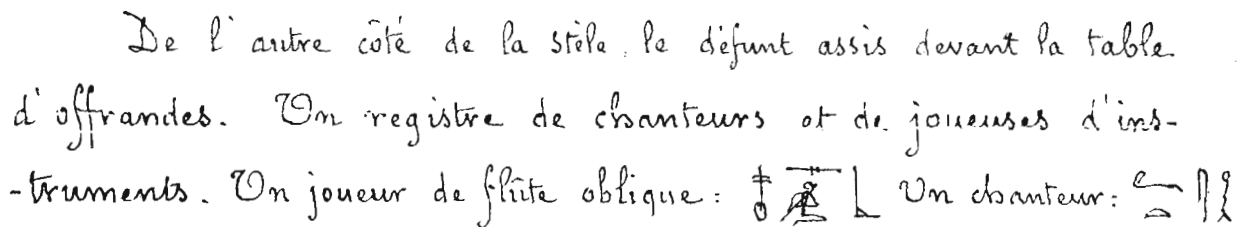 De l'autre côté de la stèle, le défunt assis devant la table
d'offrandes. Un registre de chanteurs et de joueuses d'ins-
-truments. Un joueur de flûte oblique : Un chanteur :